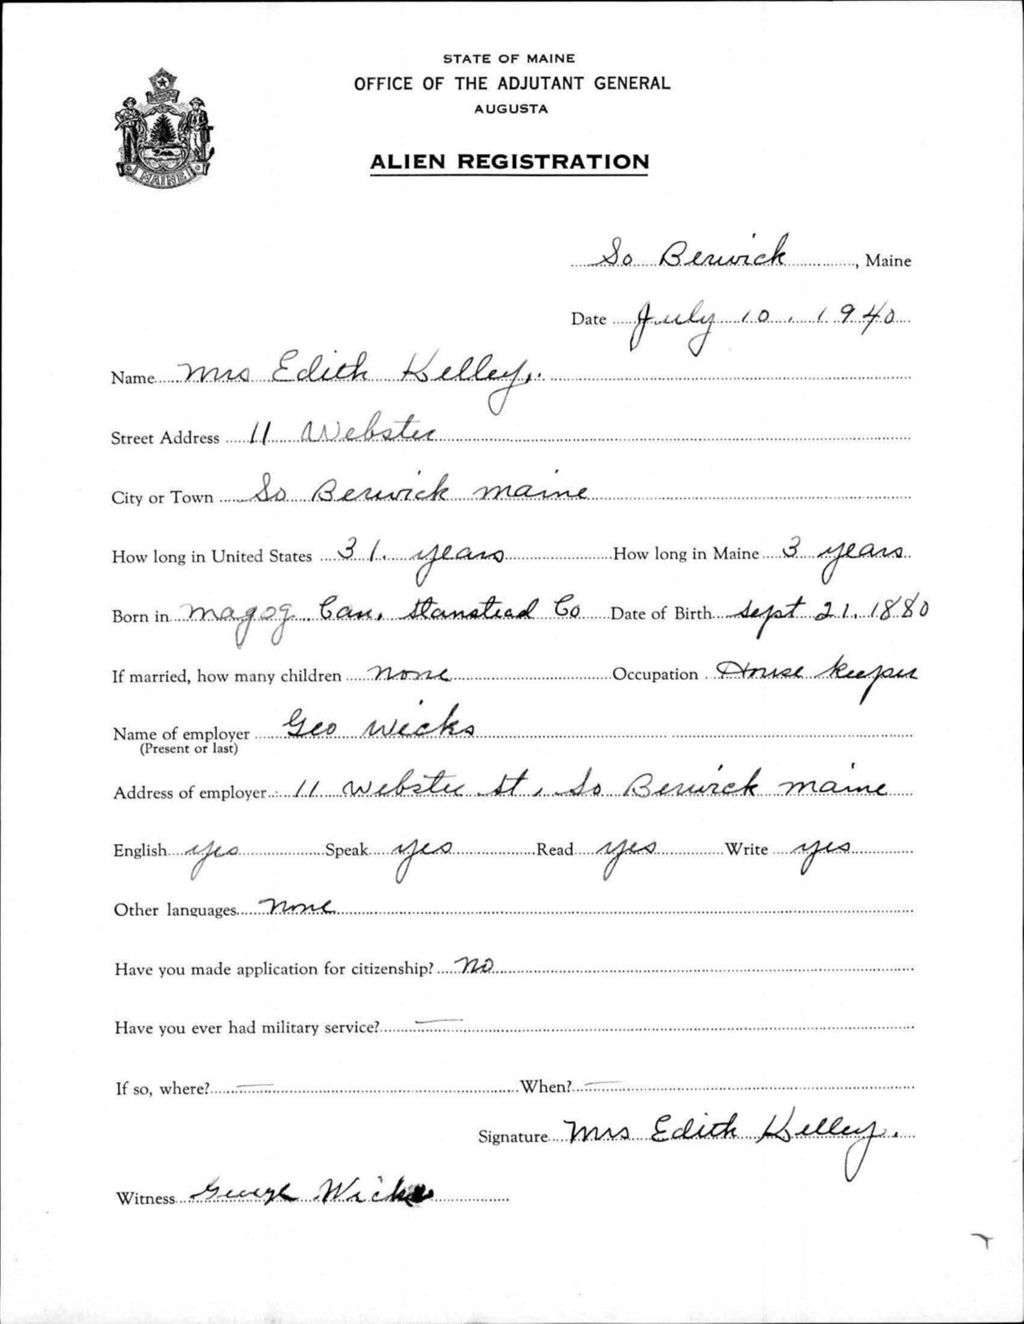 STATE OF MAINE
OFFICE OF THE ADJUTANT GENERAL
AUGUSTA
ALIEN REGISTRATION
MAINE
So Berwick, Maine
Date July 10, 1940
Name Mrs Edith Kelley.
Street Address 11 Webster
City or Town So Berwick Maine
How long in United States 31. years How long in Maine 3 years
Born in Magog Can, Stanstead Co Date of Birth Sept 21, 1880
If married, how many children None Occupation House keeper
Name of employer Geo Wicks
(Present or last)
Address of employer 11 Webster St, So Berwick Maine
English yes Speak yes Read yes Write yes
Other languages None
Have you made application for citizenship? No
Have you ever had military service? —
If so, where? — When? —
Signature Mrs Edith Kelley.
Witness George Wicks